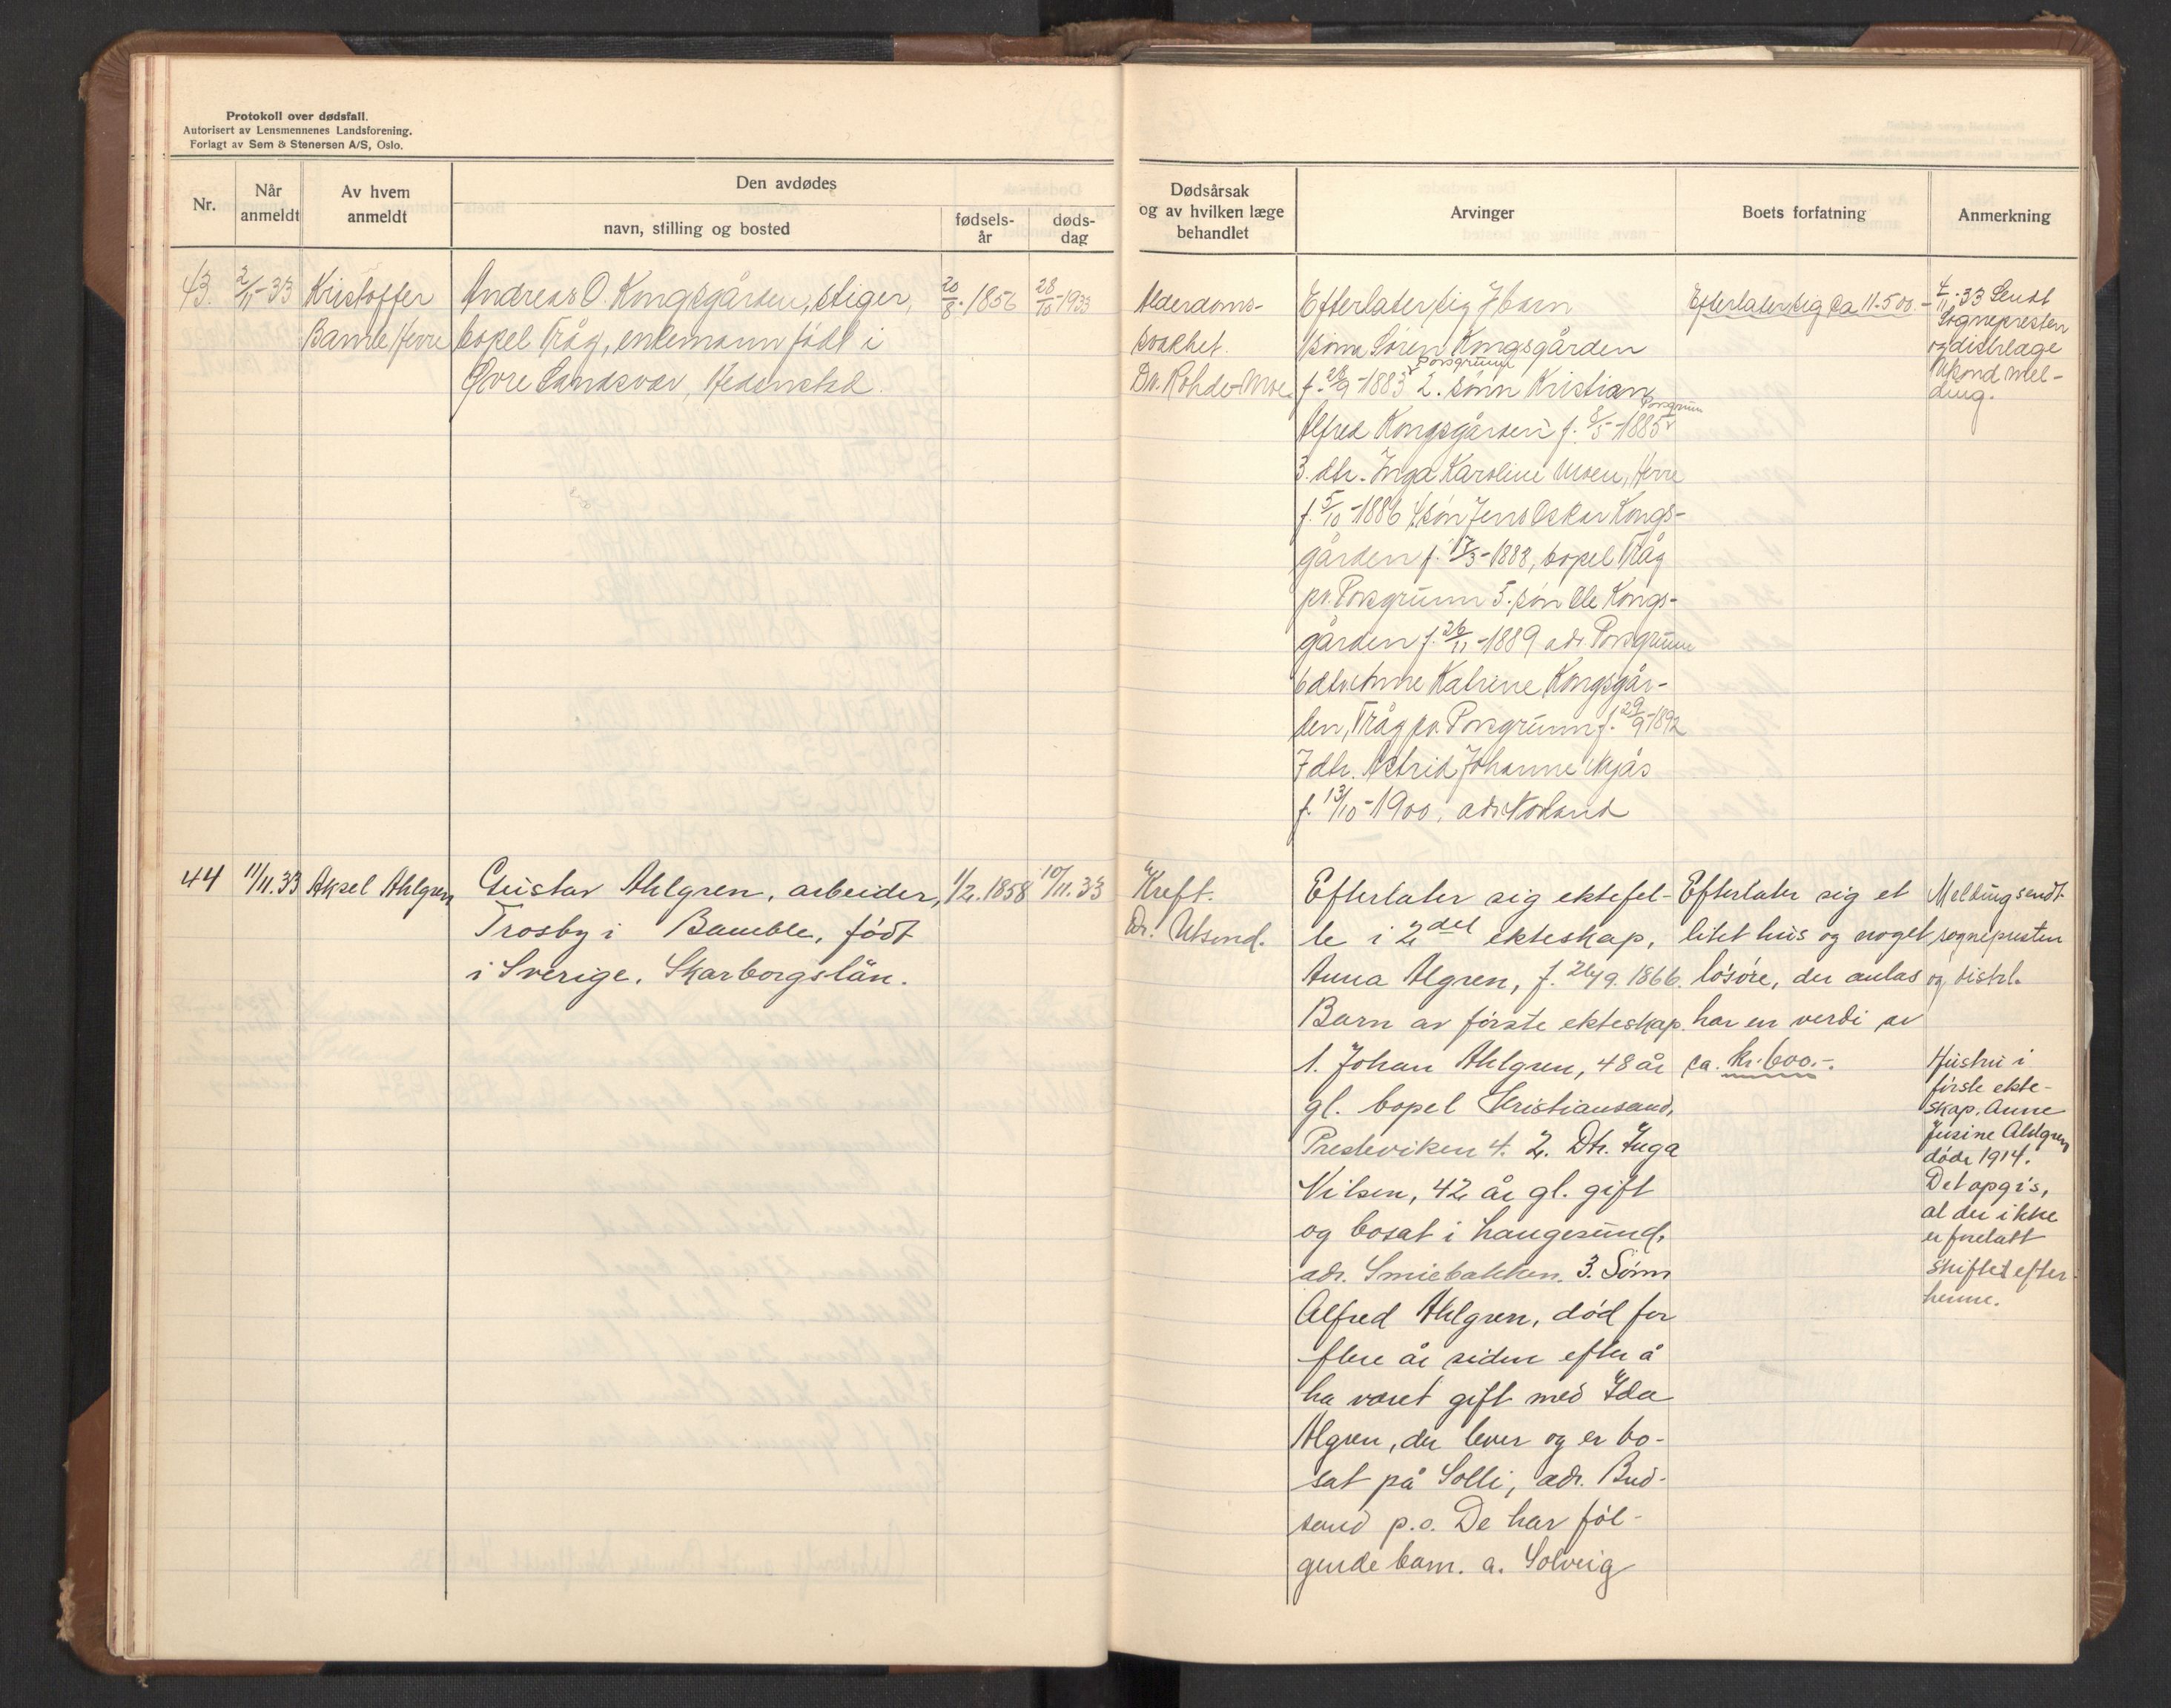 Protokoll over dødsfall.
Autorisert av Lensmennenes Landsforening.
Forlagt av Sem & Stenersen A/S, Oslo.
Nr.
Når anmeldt
Av hvem anmeldt
Den avdødes
navn, stilling og bosted
fødsels-år
døds-dag
Dødsårsak
og av hvilken læge
behandlet
Arvinger
Boets forfatning
Anmerkning
43.
2/11-33
Kristoffer
Bamle Herre
Andreas O. Kongsgården, stiger,
bopel Tråg, enkemann født i
Øvre Sandsvær, Hedenstad.
20/8-1856
28/10-1933
Alderdoms-
svakhet.
Dr. Rohde-Moe.
Efterlater sig 7 barn
1 sønn Søren Kongsgården
Porsgrunn
f. 28/9-1883 2. sønn Kristian
Porsgrunn
Alfred Kongsgården f. 8/5-1885
3. dtr. Inga Karoline Moen, Herre
f. 5/10-1886 4. søn Jens Oskar Kongs-
gården f. 17/3-1888, bopel Tråg
pr. Porsgrunn 5. søn Ole Kongs-
gården f. 26/11-1889 adr. Porsgrunn
6 dtr. Anne Katrine Kongsgår-
den, Tråg pr. Porsgrunn f. 29/9-1892
7 dtr. Astrid Johanne
f. 13/10-1900, adr.
Efterlater sig ca 11.500.-
4/11-33 Sendt
Sognepresten
og distrlæge
mel-
ding.
44
11/11.33
Aksel Ahlgren
Gustav Ahlgren, arbeider,
Trosby i Bamble, født
i Sverige, Skarborgslän.
1/2.1858
10/11.33
Kreft.
Dr. Utsond.
Efterlater sig ektefel-
le i 2det ekteskap,
Anna Algren, f. 26/9.1866.
Barn av første ekteskap.
1. Johan Ahlgren, 48 år
gl. bopel Kristiansand,
Presteviken 4. 2. Dtr. Inga
Nilsen, 42 år gl. gift
og bosat i Haugesund,
adr. Smiebakken. 3. Sønn
Alfred Ahlgren, død for
flere år siden efter å
ha vært gift med Ida
Algren, der lever og er bo-
sat på Solli, adr. Bud-
sand p.o. De har føl-
gende barn. a. Solveig
Efterlater sig et
litet hus og noget
løsøre, der antas
har en verdi av
ca. kr. 600.-.
Melding sendt
sognepresten
og distrl.
Hustru i
første ekte-
skap, Anne
Jusine Ahlgren
døde 1914.
Det opgis,
at der ikke
er foretatt
skifte efter
henne.